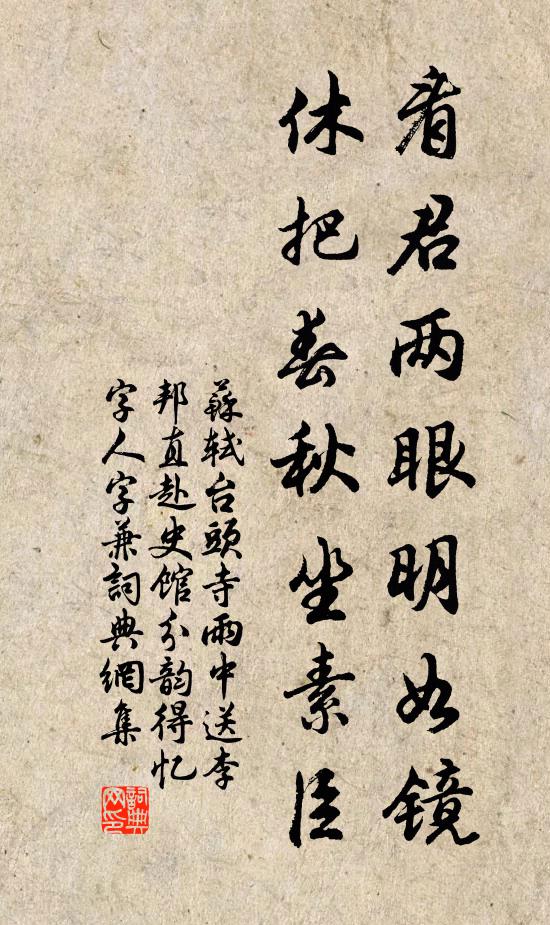 看君两眼明如镜
休把春秋坐素臣
蘇轼台頭寺雨中送李
邦直赴史馆分韵得忆
字人字兼詞典網集
詞典网印